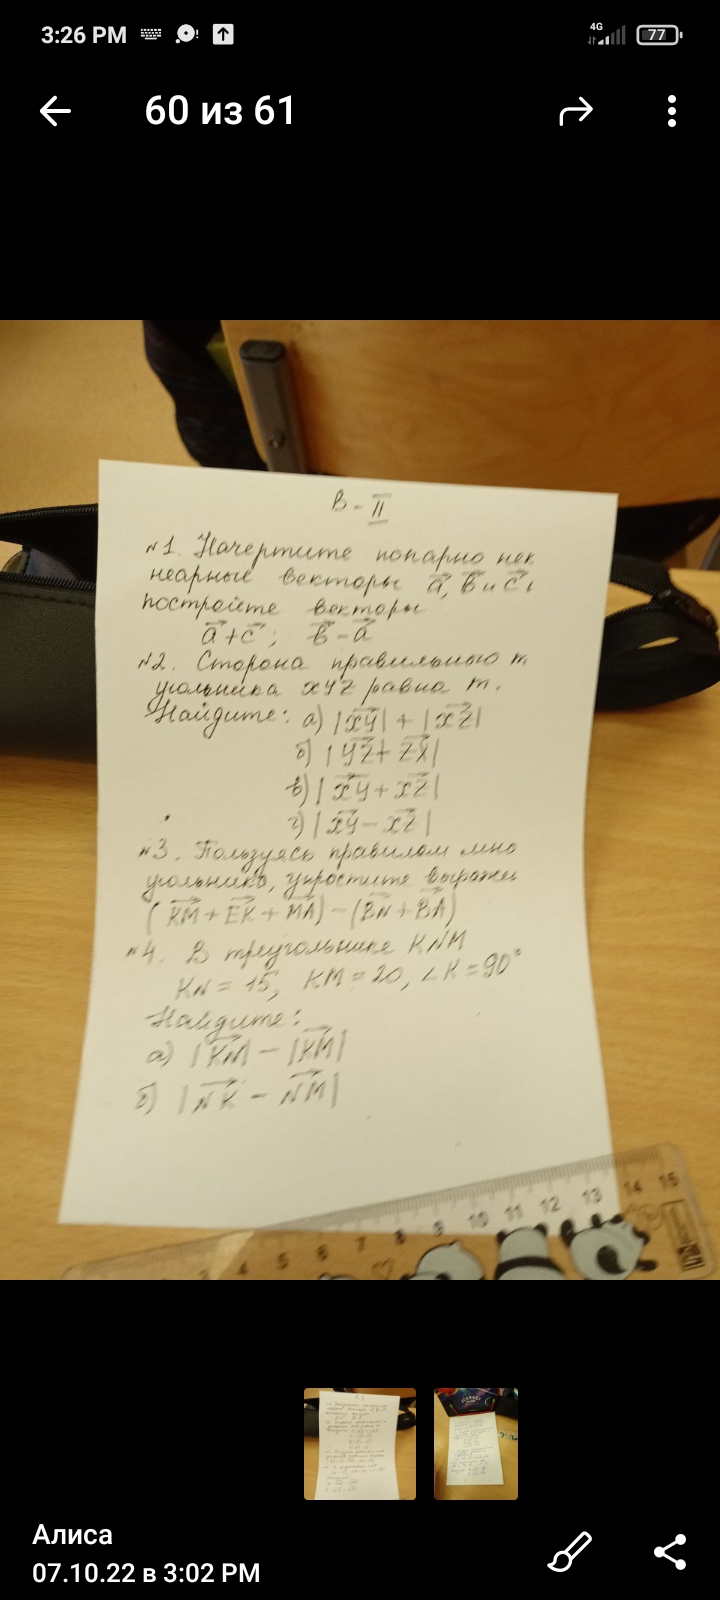 3:26 PM
4G
77
60 из 61
В - II
№1. Начертите попарно нек
неарные векторы a, b и c и
постройте векторы
a + c ; b - a
№2. Сторона правильного т
угольника XYZ равна m.
Найдите: а) |XY| + |XZ|
б) |YZ + ZX|
в) |XY + XZ|
г) |XY - XZ|
№3. Пользуясь правилом мно
угольника, упростите выражен
(KM + EK + MA) - (BN + BA)
№4. В треугольнике KNM
KN = 15, KM = 20, ∠K = 90°
Найдите:
а) |KN| - |KM|
б) |NK - NM|
3 4 5 6 7 8 9 10 11 12 13 14 15
Алиса
07.10.22 в 3:02 PM